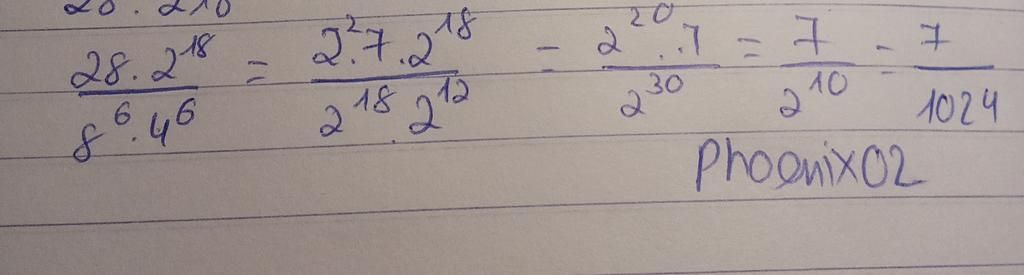 28 · 2^18 / 8^6 · 4^6 = 2^2 · 7 · 2^18 / 2^18 · 2^12 = 2^20 · 7 / 2^30 = 7 / 2^10 = 7 / 1024
Phoenix02